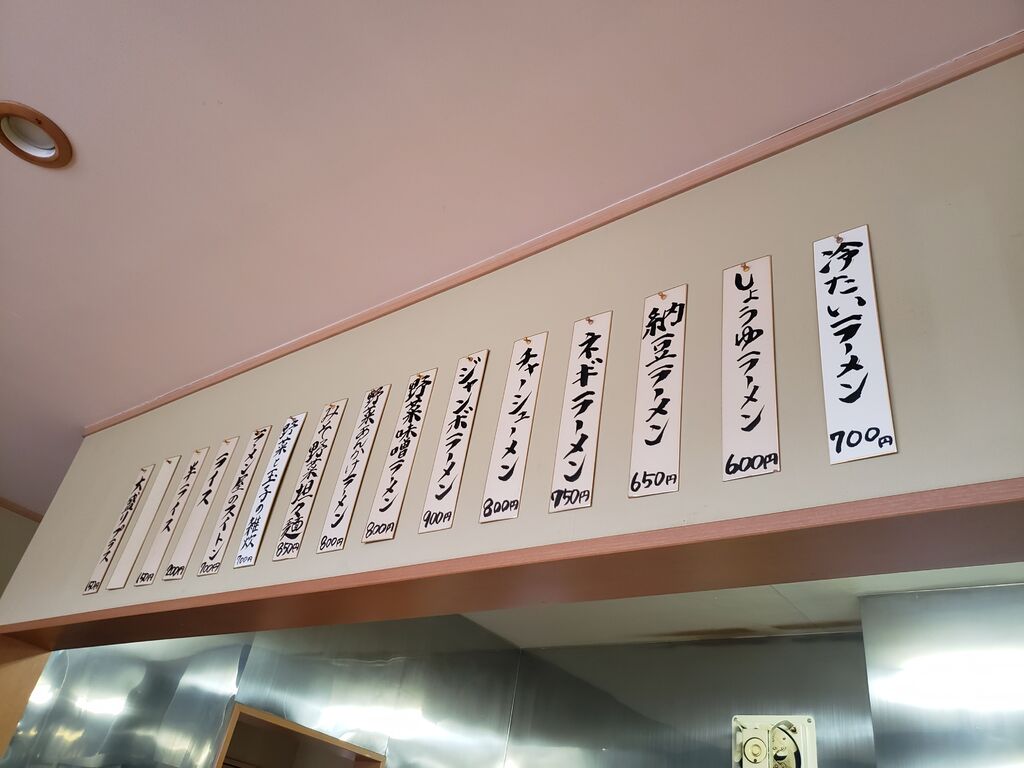 冷たいラーメン
700円
しょうゆラーメン
600円
納豆ラーメン
650円
ネギラーメン
750円
チャーシューメン
800円
ジャンボラーメン
900円
野菜味噌ラーメン
800円
野菜あんかけラーメン
800円
みそ野菜担々麺
850円
野菜と玉子の雑炊
700円
ラーメン屋のスイートン
700円
ライス
200円
半ライス
150円
大盛りプラス
150円